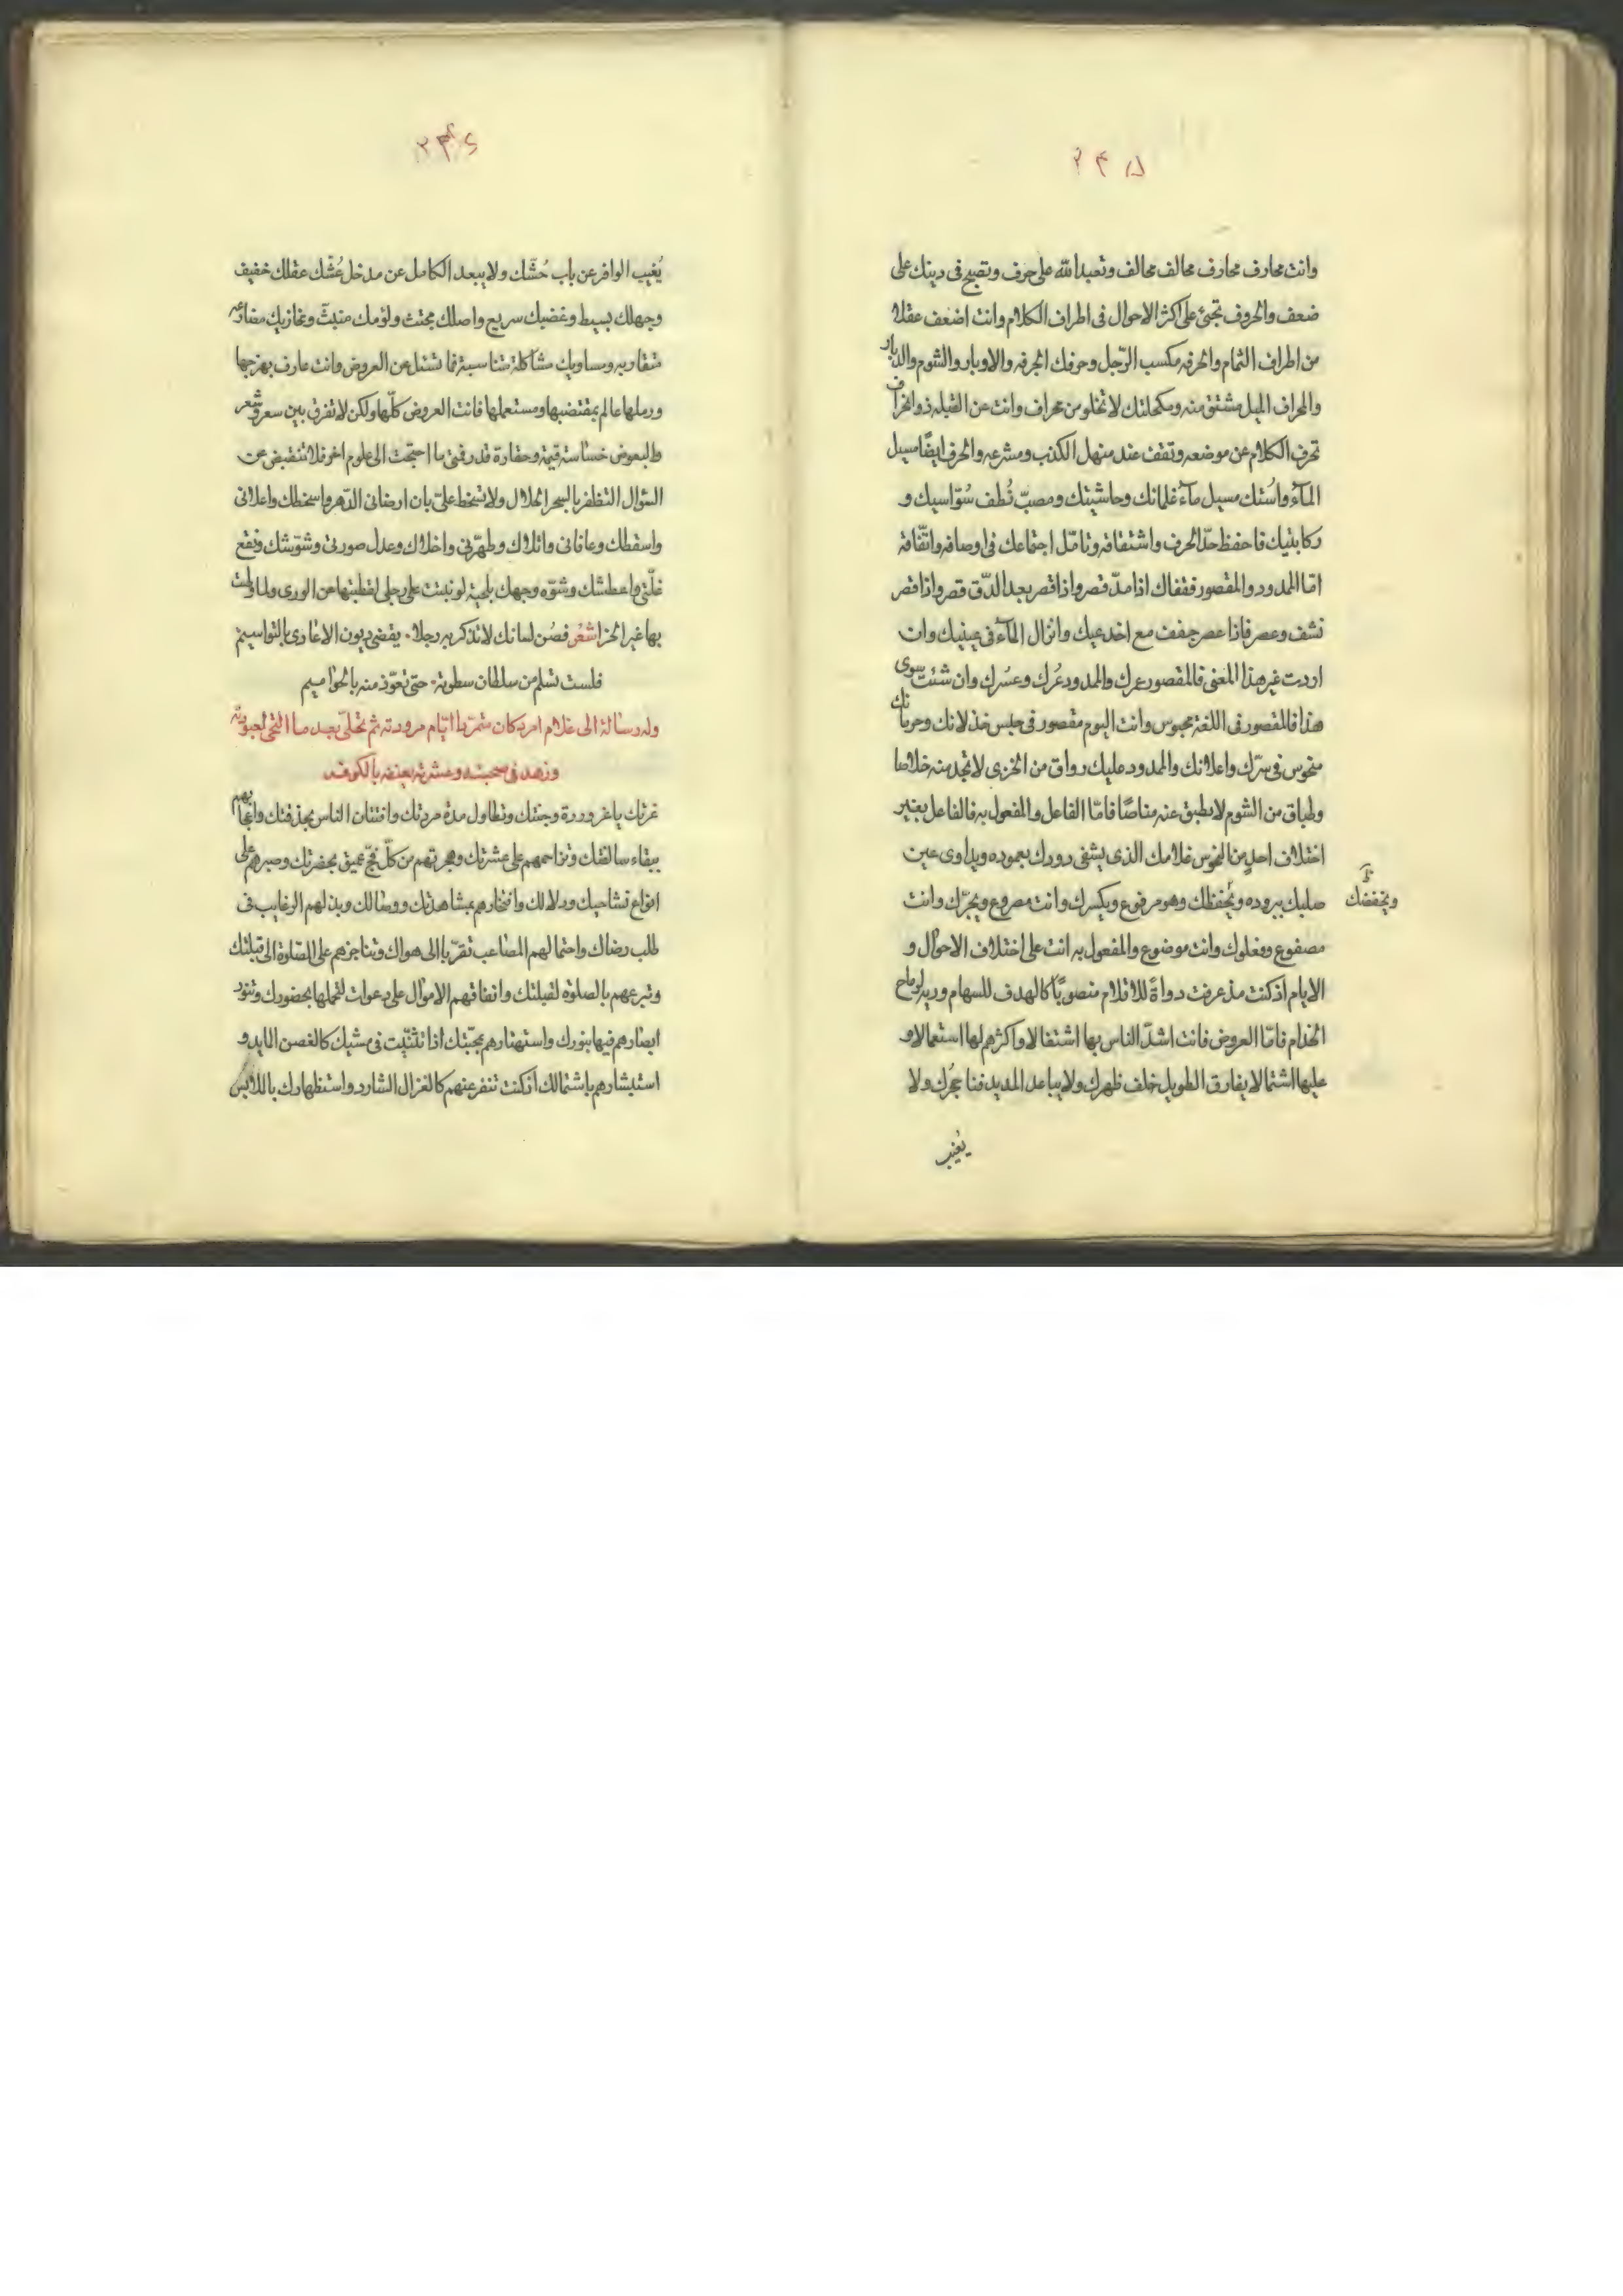 ۲۴۵
وانت محارف محارف مخالف محالف وتعبد الله على حرف وتصبح في دينك على
ضعف والحروف تجئ على اكثر الاحوال في اطراف الكلام وانت اضعف عقلا
من اطراف الثمام والحرفه مكسب الرّجل وحرفك الحرفه والاوبار والشوم والدبار
والمحراف الميل مشتق منه ومكحلتك لا تخلو من محراف وانت عن القبله ذو انحراف
تحرف الكلام عن موضعه وتقف عند منهل الكذب ومشرعه والحرف ايضًا مسيل
المآء واستك مسيل مآء غلمانك وحاشيتك ومصبّ نُطف سُوّاسيك و
ركابتيك فاحفظ حدّ الحرف واشتقاقه وتامّل اجتماعك في اوصافه واتّفاقه
امّا الممدود والمقصور فقفاك اذا مدّ قصر واذا قصر بعد الدّق قصر واذا قصر
نشف وعصر فاذا عصر جفف مع اخدعيك وانزال المآء في عينيك وان
اردت غير هذا المعنى فالمقصور عمرك والممدود عُرك وعسُرك وان شئت سوى
هذا فالمقصور في اللغة محبوس وانت اليوم مقصور في حبس خذلانك وحرمانك
منحوس في سرّك واعلانك والممدود عليك رواق من الخزى لا تجد منه خلاصا
وطباق من الشوم لا يطبق عنه مناصًا فامّا الفاعل والمفعول به فالفاعل بغير
اختلاف احدٍ من النحوس غلامك الذى يشفى دورك بعموده ويداوى عين
صلبك ببروده ويُخفظك وهو مرفوع ويكسرك وانت مصروع ويجرّك وانت
ويخفضك
مصفوع ومغلوك وانت موضوع والمفعول به انت على اختلاف الاحوال و
الايام اذ كنت مذ عرفت دواةً للاقلام منصوبًا كالهدف للسهام ودرية لرماح
الخدام فامّا العروض فانت اشدّ الناس بها اشتغالا واكثرهم لها استعمالا و
عليها اشتمالا يفارق الطويل خلف ظهرك ولا يباعد المديد فنا حجرك ولا
يُغيب
۲۴۶
يُغيب الوافر عن باب حُشّك ولا يبعد الكامل عن مدخل عُشّك عقلك خفيف
وجهلك بسيط وغضبك سريع واصلك مجتث ولؤمك منبثّ ومخازيك
متقاربه ومساويك مشاكلة متناسبة فما تسئل عن العروض وانت عارف بهزجها
ورملها عالم بمقتضبها ومستعملها فانت العروض كلّها ولكن لا تفرق بين سعر وشعر
والبعوض خساسة قيمة وحقارة قدر فمتى ما احتجت الى علوم اخر فلا تنقبض عن
السّؤال لتظفر بالسحر الحلال ولا تسخط علىّ بان ارضانى الدّهر واسخطك واعلانى
واسقطك وعافانى وابلاك وطهّرنى واخلاك وعدل صورتى وشوّشك ونقع
غلّتى واعطشك وشوّه وجهك بلحية لو نبتت على رجلى لقطبتها عن الورى ولما
بها غير الخرا شعُر فصُن لسانك لا تذكر به رجلا • يقضى ديون الاعادى بالتواسيم
فلست تسلم من سلطان سطوته • حتى تعوّذ منه بالحواميم
وله رسالة الى غلام امرد كان متمرّدا ايّام مرودته ثم تخلّى بعد ما التحى
وزهد في صحبته وعشرته يعنفه بالكوفه
غرتك يا غرور درة وجنتك وتطاول مدة مردتك وافتتان الناس بحذقتك واعجابهم
ببقاء سالفتك وتزاحمهم على عشرتك وهجرتهم من كلّ فجّ عميق بحضرتك وصبرهم على
انواع تشاحيك ودلالك وافتخارهم بمشاهدتك ووصالك وبذلهم الرغايب في
طلب رضاك واحتمالهم المصاعب تقرّبا الى هواك وتناجزهم على الصّلوة الى قبلتك
وتبرعهم بالصلوة لقبلتك وانفاقهم الاموال على دعوات لتجملها بحضورك وتنور
ابصارهم فيها بنورك واستهتارهم بمحبّتك اذا تثنّيت في مشيك كالغصن المايد و
استبشارهم باشتمالك اذ كنت تنفر عنهم كالغزال الشارد واستظهارك بالملابس